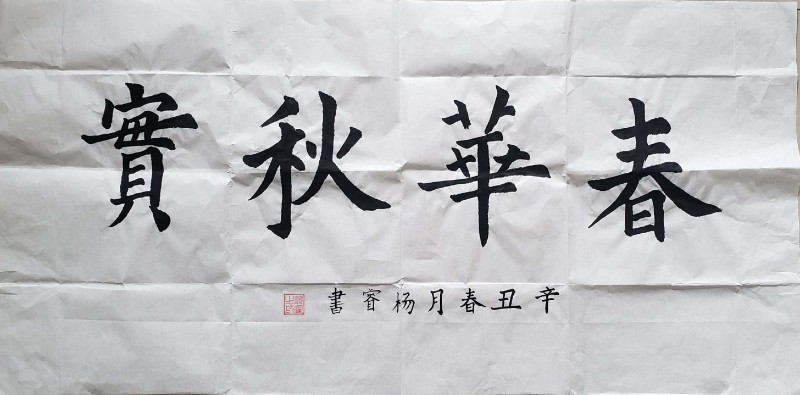 春華秋實
辛丑春月杨睿書